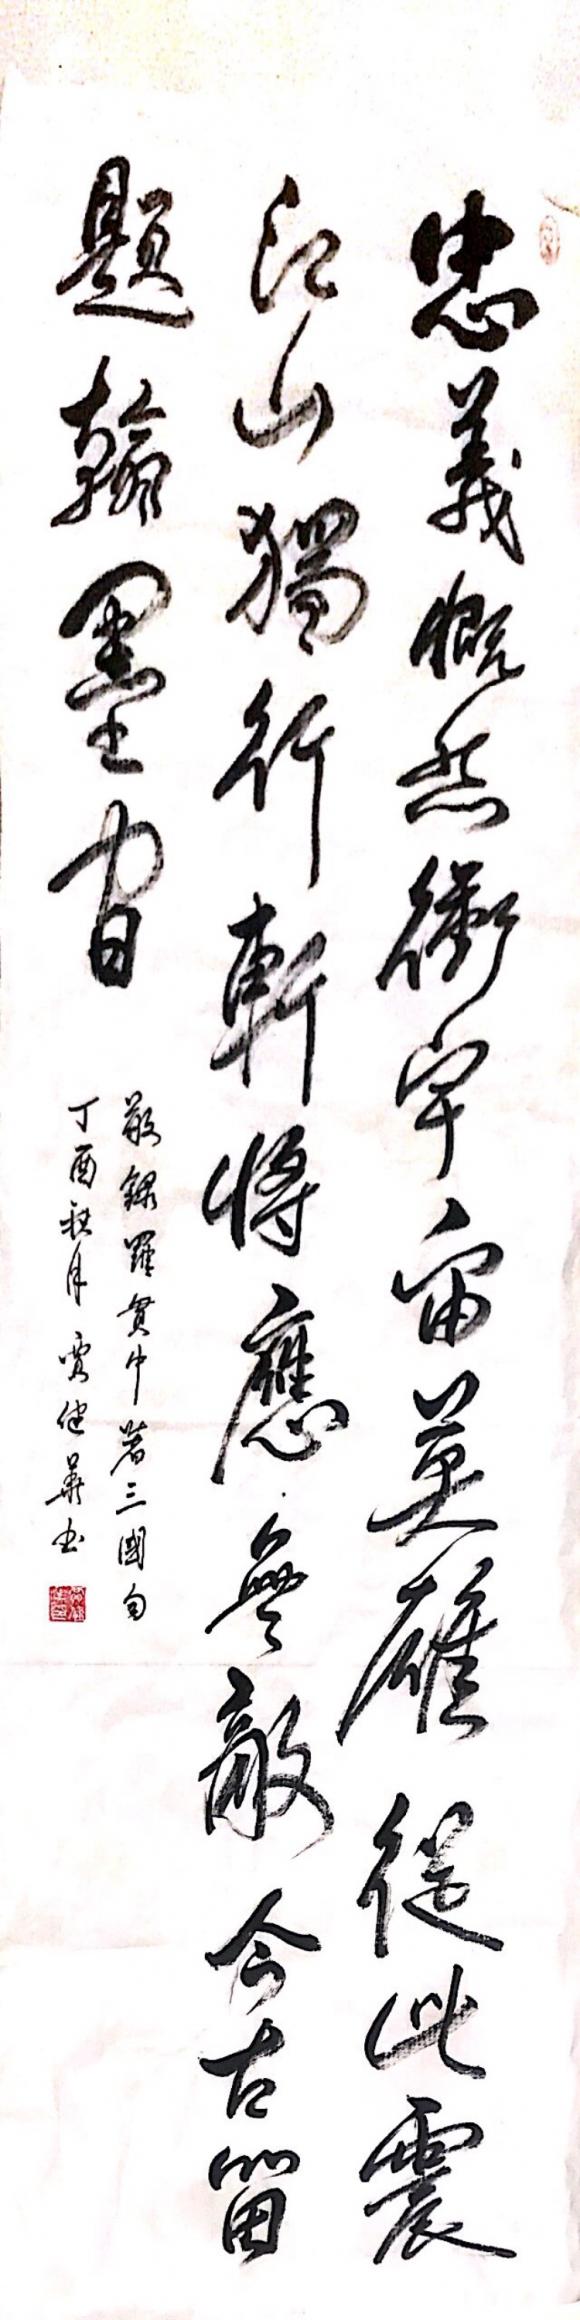 忠義慨然衝宇宙英雄從此震
江山獨行斬將應無敵今古留
題翰墨間
敬錄羅貫中著三國句
丁酉秋月賈健華书